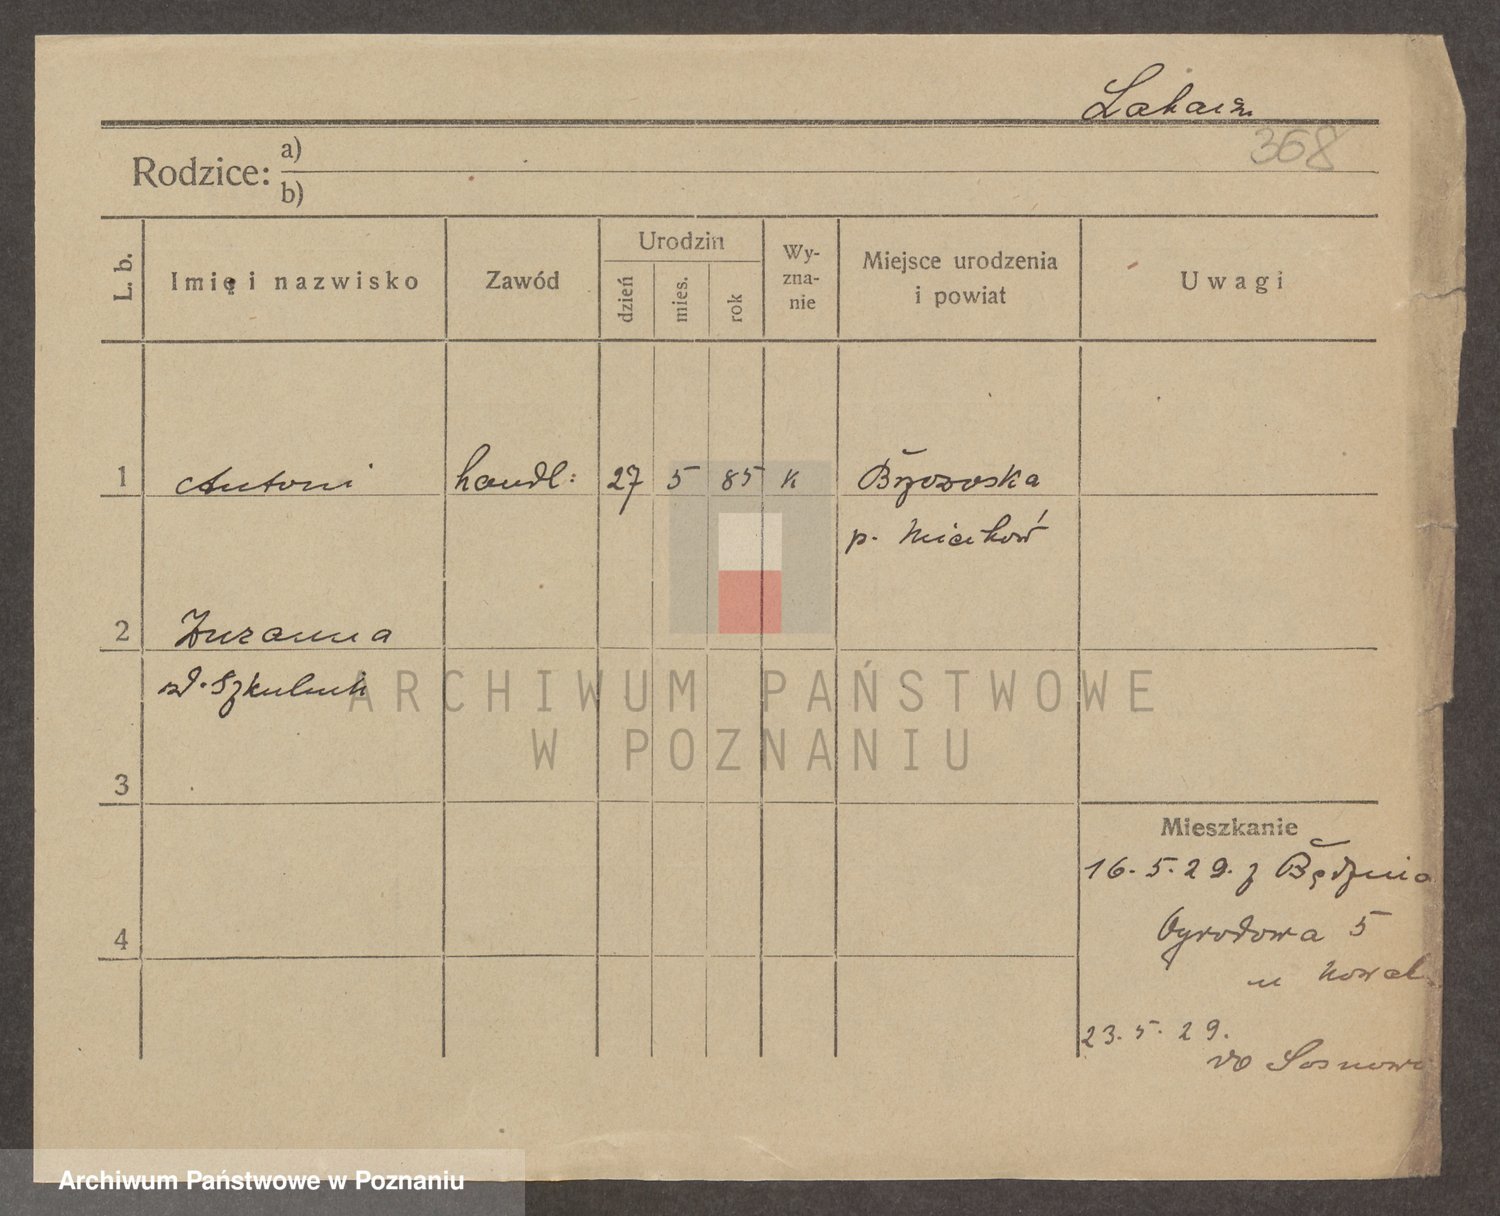 368
Rodzice: a)
b)
L. b. Imię i nazwisko Zawód Urodzin Wy-zna-nie Miejsce urodzenia i powiat Uwagi
dzień mies. rok
1 Antoni handl: 27 5 85 K Brzozowska
p.
2 Zuzanna
zd.
3
4
Mieszkanie
16. 5. 29. z Będzina
Ogrodowa 5
u Nowak
23. 5. 29.
do Sosnow
ARCHIWUM PAŃSTWOWE
W POZNANIU
Archiwum Państwowe w Poznaniu